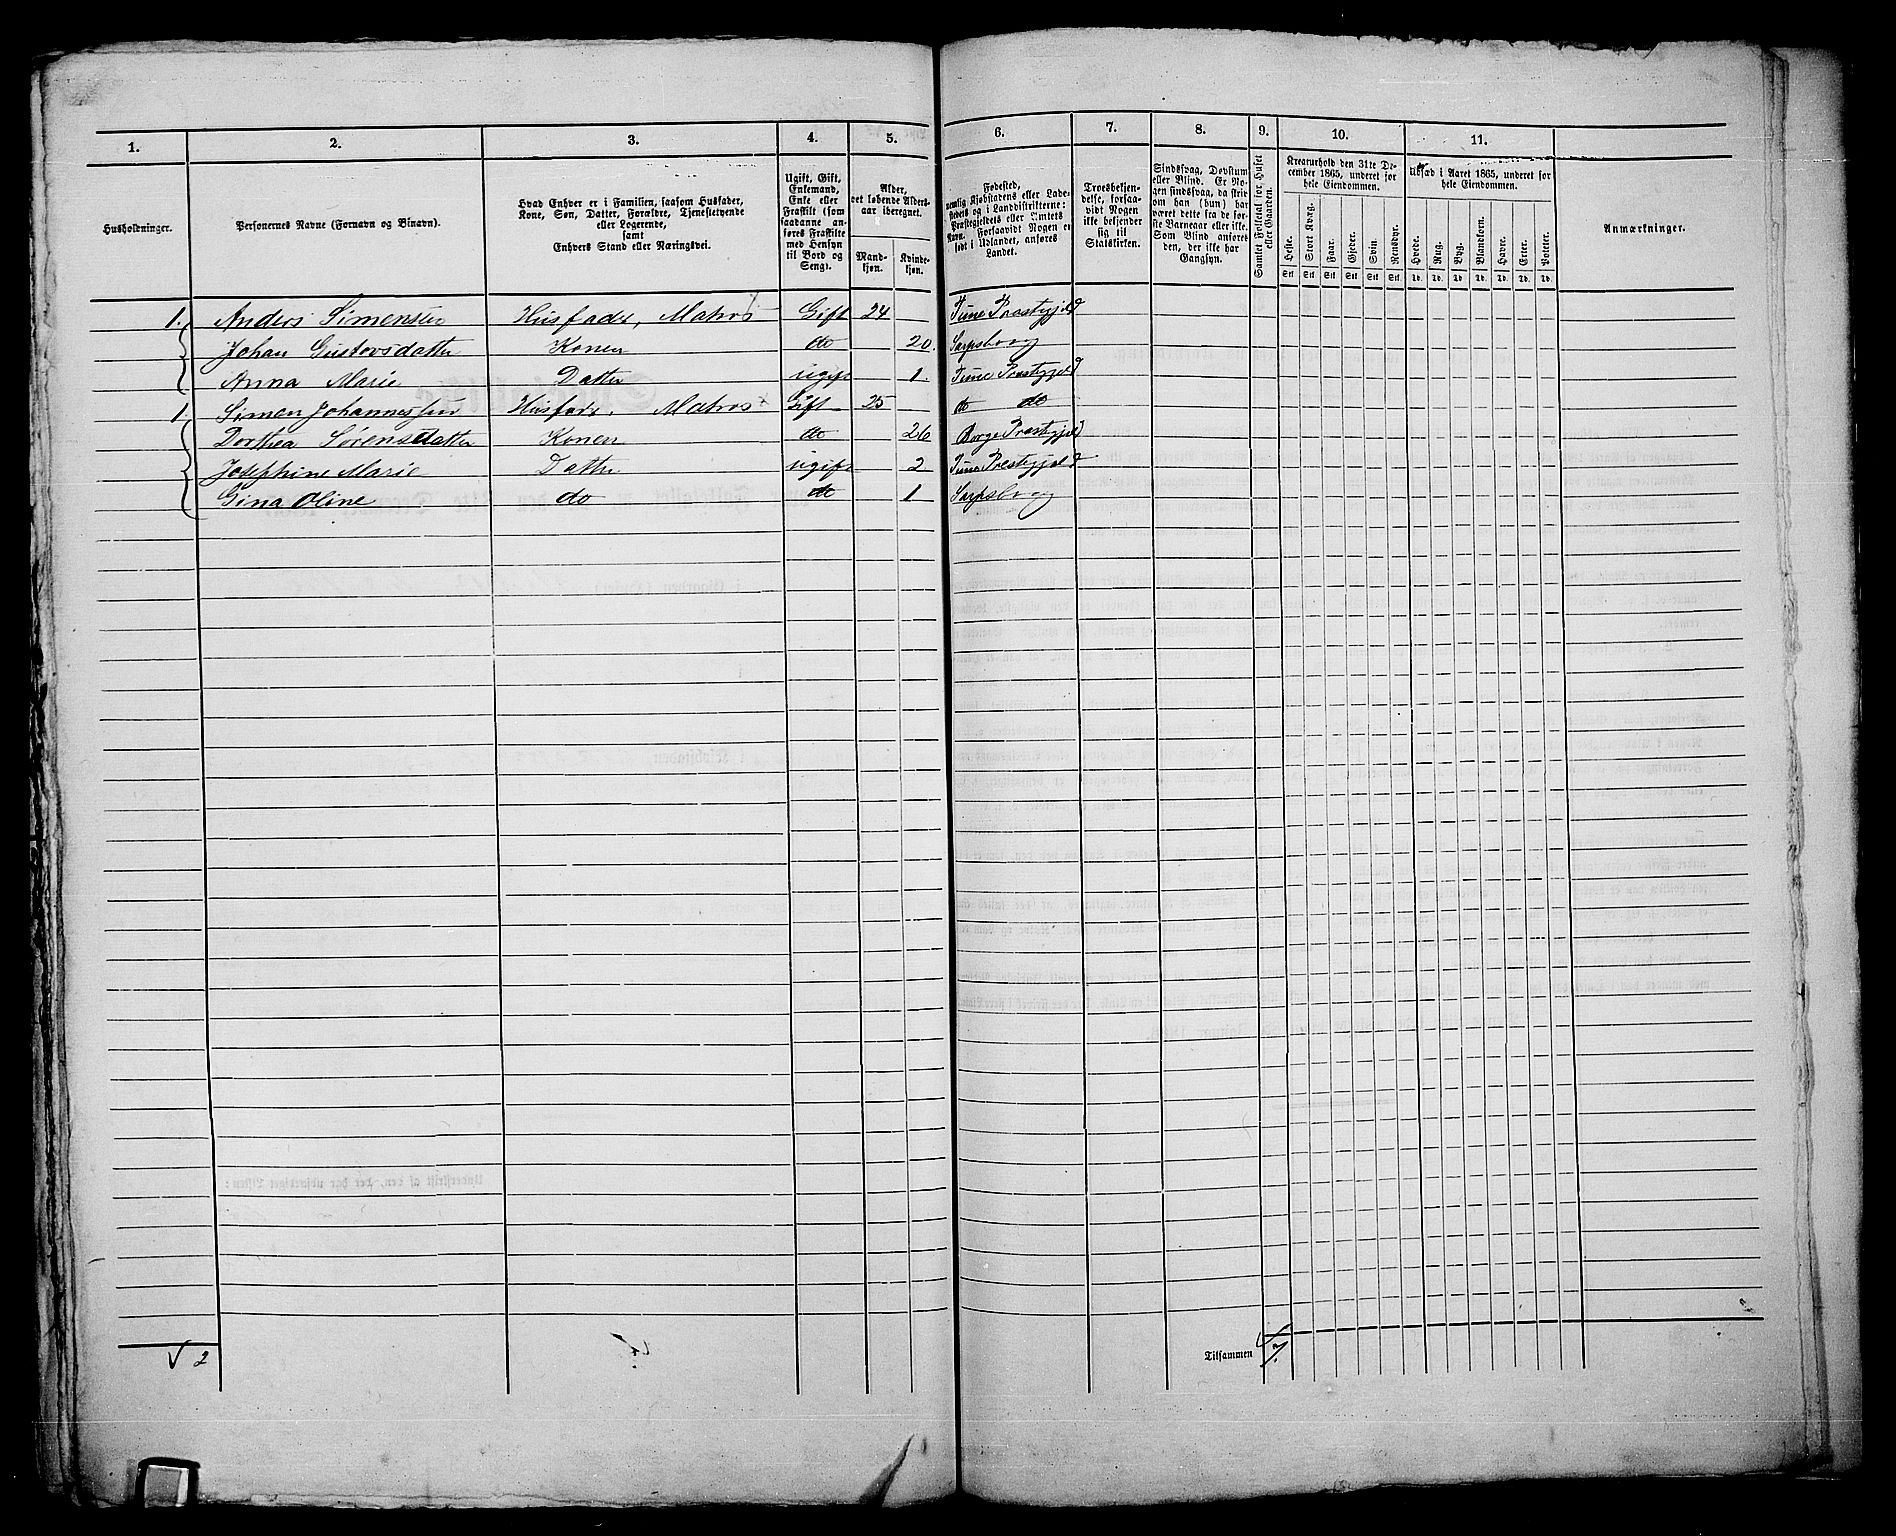 1. 2. 3. 4. 5. 6. 7. 8. 9. 10. 11.
Husholdninger.
Personernes Navne (Fornavn og Binavn).
Hvad Enhver er i Familien, saasom Husfader,
Kone, Søn, Datter, Forældre, Tjenestetyende
eller Logerende,
samt
Enhvers Stand eller Næringsvei.
Ugift, Gift,
Enkemand,
Enke eller
Fraskilt (som
saadanne an-
føres Fraskilte
med Hensyn
til Bord og
Seng).
Alder,
det løbende Alders-
aar iberegnet.
Mand-
kjøn.
Kvinde-
kjøn.
Fødested,
nemlig Kjøbstadens eller Lade-
stedets og i Landdistrikterne:
Præstegjeldets eller Amtets
Navn. Forsaavidt Nogen er
født i Udlandet, anføres
Landet.
Troesbekjen-
delse, forsaa-
vidt Nogen
ikke bekjender
sig til
Statskirken.
Sindssvag, Døvstum
eller Blind. Er No-
gen sindssvag, da skriv
om han (hun) har
været dette fra de før-
ste Barneaar eller ikke.
Som Blind anføres
den, der ikke har
Gangsyn.
Samlet Folketal for Huset
eller Gaarden.
Kreaturhold den 31te De-
cember 1865, underet for
hele Eiendommen.
Heste. Stort Kvæg. Faar. Gjeder. Svin. Rensdyr.
Stk Stk Stk Stk Stk Stk
Udsæd i Aaret 1865, underet for
hele Eiendommen.
Hvede. Rug. Byg. Blandkorn. Havre. Erter. Poteter.
Td. Td. Td. Td. Td. Td. Td.
Anmærkninger.
1. Anders Simensen Husfader, Matros Gift 24 Tune Præstegjeld
Johan Gustavsdatter Konen do 20. Sarpsborg
Anna Marie Datter ugift 1. Tune Præstegjeld
1. Simen Johannessen Husfader. Matros Gift 25 do do
Dorthea Sørensdatter Konen do 26 Borge Præstegjeld
Josephine Marie Datter ugift 2 Tune Præstegjeld
Gina Oline do do 1 Sarpsborg
√ 2
Tilsammen 7.